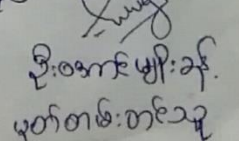 ဦးအောင်မျိုးခန့်
မှတ်တမ်းတင်သူ